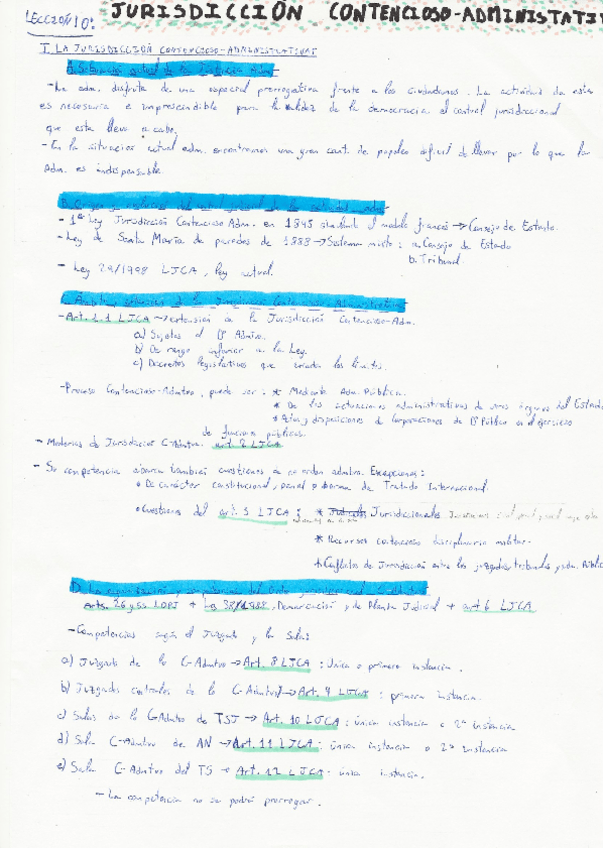 LECCIÓN 10: JURISDICCIÓN CONTENCIOSO-ADMINISTATIV
I. LA JURISDICCIÓN CONTENCIOSO-ADMINISTRATIVA
A. Situación actual de la Justicia Adm.
- La adm. disfruta de una especial prerrogativa frente a los ciudadanos. La actividad de esta
es necesaria e imprescindible para la validez de la democracia el control jurisdiccional
que esta lleva a cabo.
- En la situación actual adm. encontramos una gran cant. de papeleo dificil de llevar por lo que la
Adm. es indispensable.
B.
- 1ª Ley Jurisdicción Contencioso Adm. en 1845 el modelo francés → Consejo de Estado.
- Ley de Santa María de paredes de 1888 → Sistema mixto: a. Consejo de Estado
b. Tribunal
- Ley 29/1998 LJCA, ley actual.
C.
- Art. 1.1 LJCA → extensión a la Jurisdicción Contencioso-Adm.
a) Sujetos al Dº Admtivo.
b) De rango inferior a la Ley.
c) Decretos legislativos que excedan los límites.
- Proceso Contencioso-Admtivo, puede ser: * Mediante Adm. Pública.
* De las actuaciones administrativas de otros órganos del Estado
* Actos y disposiciones de Corporaciones de Dº Público en el ejercicio
de funciones públicas.
- Materias de Jurisdicción C-Admtva. art. 2 LJCA
- Su competencia abarca también cuestiones de orden admtvo. Excepciones:
• De carácter constitucional, penal o forma de Tratado Internacional.
• Cuestiones del art. 3 LJCA: * Jurisdiccionales
* Recursos contencioso disciplinario militar.
* Conflictos de Jurisdicción entre los juzgados, tribunales y adm. Públic
D.
Arts. 26 y ss LOPJ + Ley 38/1988, Demarcación y de Planta Judicial + art 6 LJCA
- Competencias según el Juzgado y la Sala:
a) Juzgado de lo C-Admtvo → Art. 8 LJCA: Única o primera instancia.
b) Juzgados centrales de lo C-Admtvo → Art. 9 LJCA: primera instancia.
c) Salas de lo C-Admtvo de TSJ → Art. 10 LJCA: única instancia o 2ª instancia
d) Sala C-Admtvo de AN → Art. 11 LJCA: única instancia o 2ª instancia
e) Sala C-Admtvo del TS → Art. 12 LJCA: única instancia.
- La competencia no se podrá prorrogar.